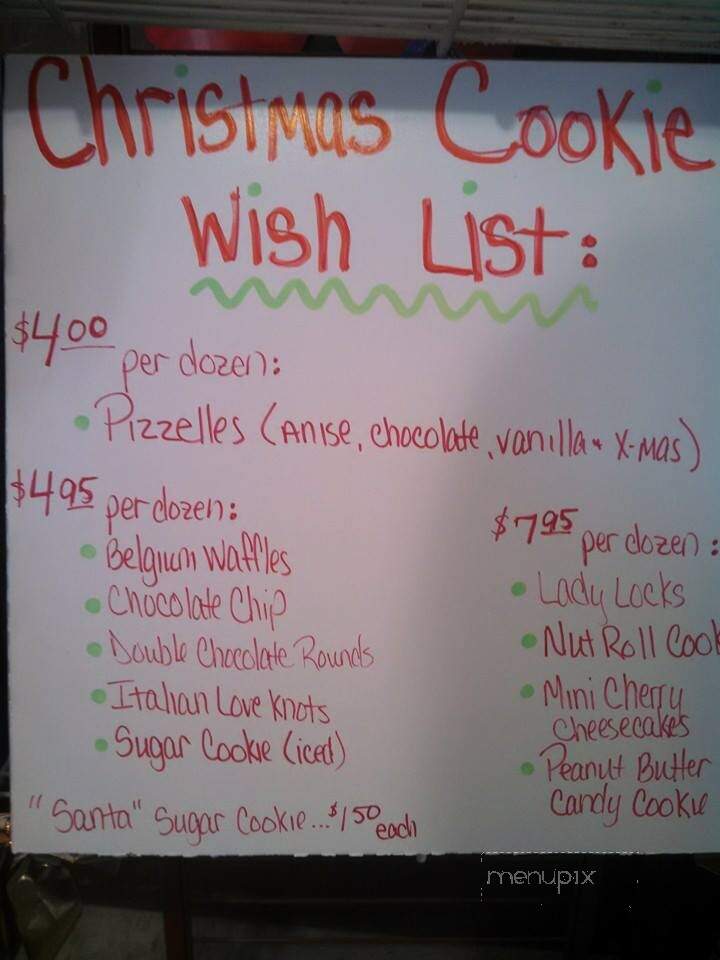 Christmas Cookie
Wish List:
$4.00
per dozen:
• Pizzelles (Anise, chocolate, vanilla + X-mas)
$4.95 per dozen:
• Belgium Waffles
• Chocolate Chip
• Double Chocolate Rounds
• Italian Love Knots
• Sugar Cookie (iced)
"Santa" Sugar Cookie...$1.50 each
$7.95 per dozen:
• Lady Locks
• Nut Roll
• Mini Cherry
Cheesecakes
• Peanut Butter
Candy Cookie
menupix